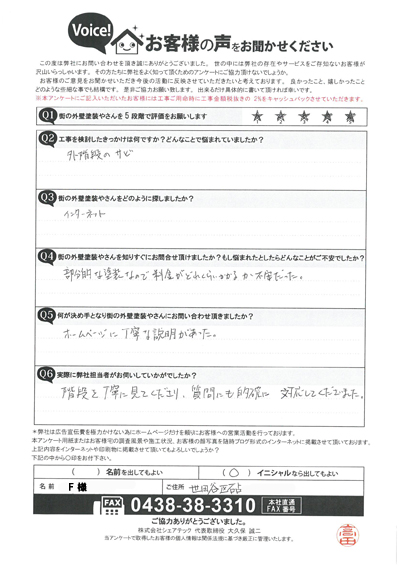 Voice!
お客様の声をお聞かせください
この度は弊社にお問い合わせを頂き誠にありがとうございました。世の中には弊社の存在やサービスをご存知ないお客様が
沢山いらっしゃいます。その方たちに弊社をよく知って頂くためのアンケートにご協力頂けないでしょうか。
お客様のご意見をお聞かせいただき今後の活動に反映させていただきたいと考えております。良かったこと、嬉しかったこと
どのような些細な事でも結構です。是非ご協力お願い致します。出来るだけ具体的に書いて頂ければ幸いです。
※本アンケートにご記入いただいたお客様には工事ご用命時に工事金額税抜きの 2%をキャッシュバックさせていただきます。
Q1 街の外壁塗装やさんを5段階で評価をお願いします
Q2 工事を検討したきっかけは何ですか?どんなことで悩まれていましたか?
外階段のサビ
Q3 街の外壁塗装やさんをどのように探しましたか?
インターネット
Q4 街の外壁塗装やさんを知りすぐにお問合せ頂けましたか?もし悩まれたとしたらどんなことがご不安でしたか?
部分的な塗装なので料金がどれくらいかかるか不安だった。
Q5 何が決め手となり街の外壁塗装やさんにお問い合わせ頂きましたか?
ホームページに丁寧な説明があった。
Q6 実際に弊社担当者がお伺いしていかがでしたか?
階段を丁寧に見てくださり、質問にも的確に対応してくださいました。
*弊社は広告宣伝費を極力かけない為にホームページだけを頼りにお客様への営業活動を行っております。
本アンケート用紙またはお客様宅の調査風景や施工状況、お客様の顔写真を随時ブログ形式のインターネットに掲載させて頂いております。
上記内容をインターネットや印刷物に掲載させて頂いてもよろしいでしょうか?
下記の中から〇印をお付け下さい。
( ) 名前を出してもよい ( ○ ) イニシャルなら出してもよい
名前 F 様 ご住所 世田谷区砧
FAX 0438-38-3310 本社直通 FAX 番号
ご協力ありがとうございました。
株式会社シェアテック 代表取締役 大久保 誠二
当アンケートで取得したお客様の個人情報は関係法規に基づき厳正に管理いたします。